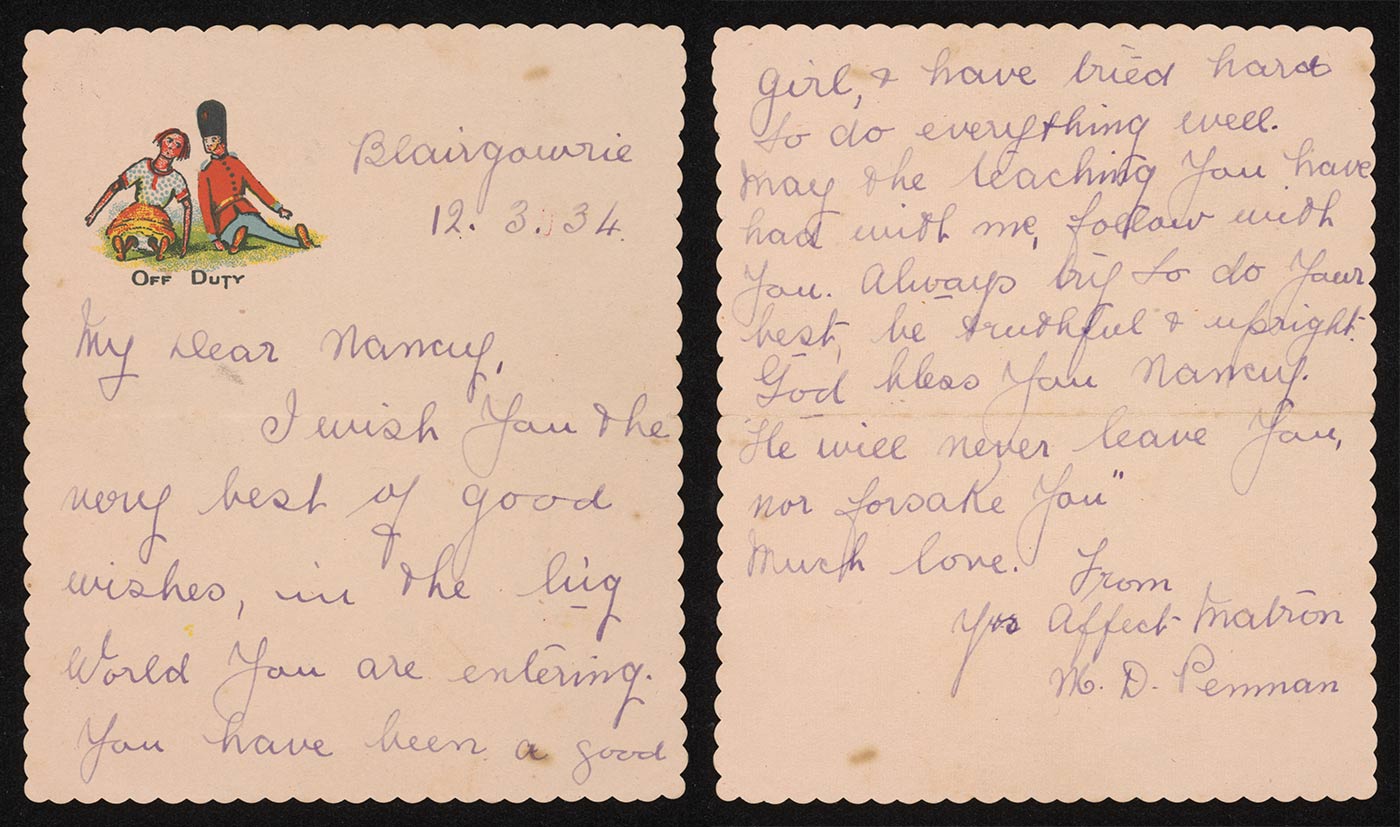 Blairgowrie
12. 3. 34.
OFF DUTY
My Dear Nancy,
I wish You the
very best of good
wishes, in the big
World You are entering.
You have been a good
girl, & have tried hard
to do everything well.
May the teaching You have
had with me, follow with
You. Always try to do Your
best, be truthful & upright.
God bless You Nancy.
He will never leave You,
nor forsake You"
Much love. From
Yrs Affect Matron
M. D. Penman